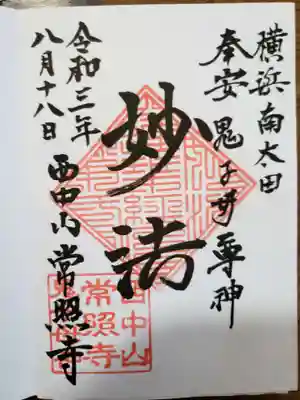 横浜南太田
奉安鬼子母尊神
妙法
令和三年
八月十八日
西中山常照寺
西中山
常照寺